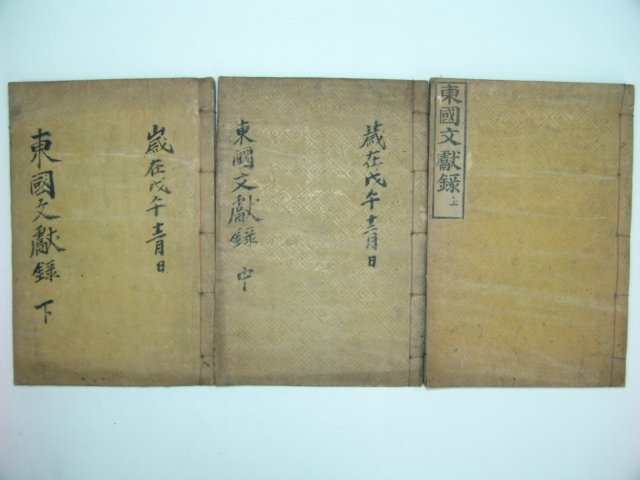 東國文獻錄 上
歲在戊午十二月日
東國文獻錄 中
歲在戊午十二月日
東國文獻錄 下